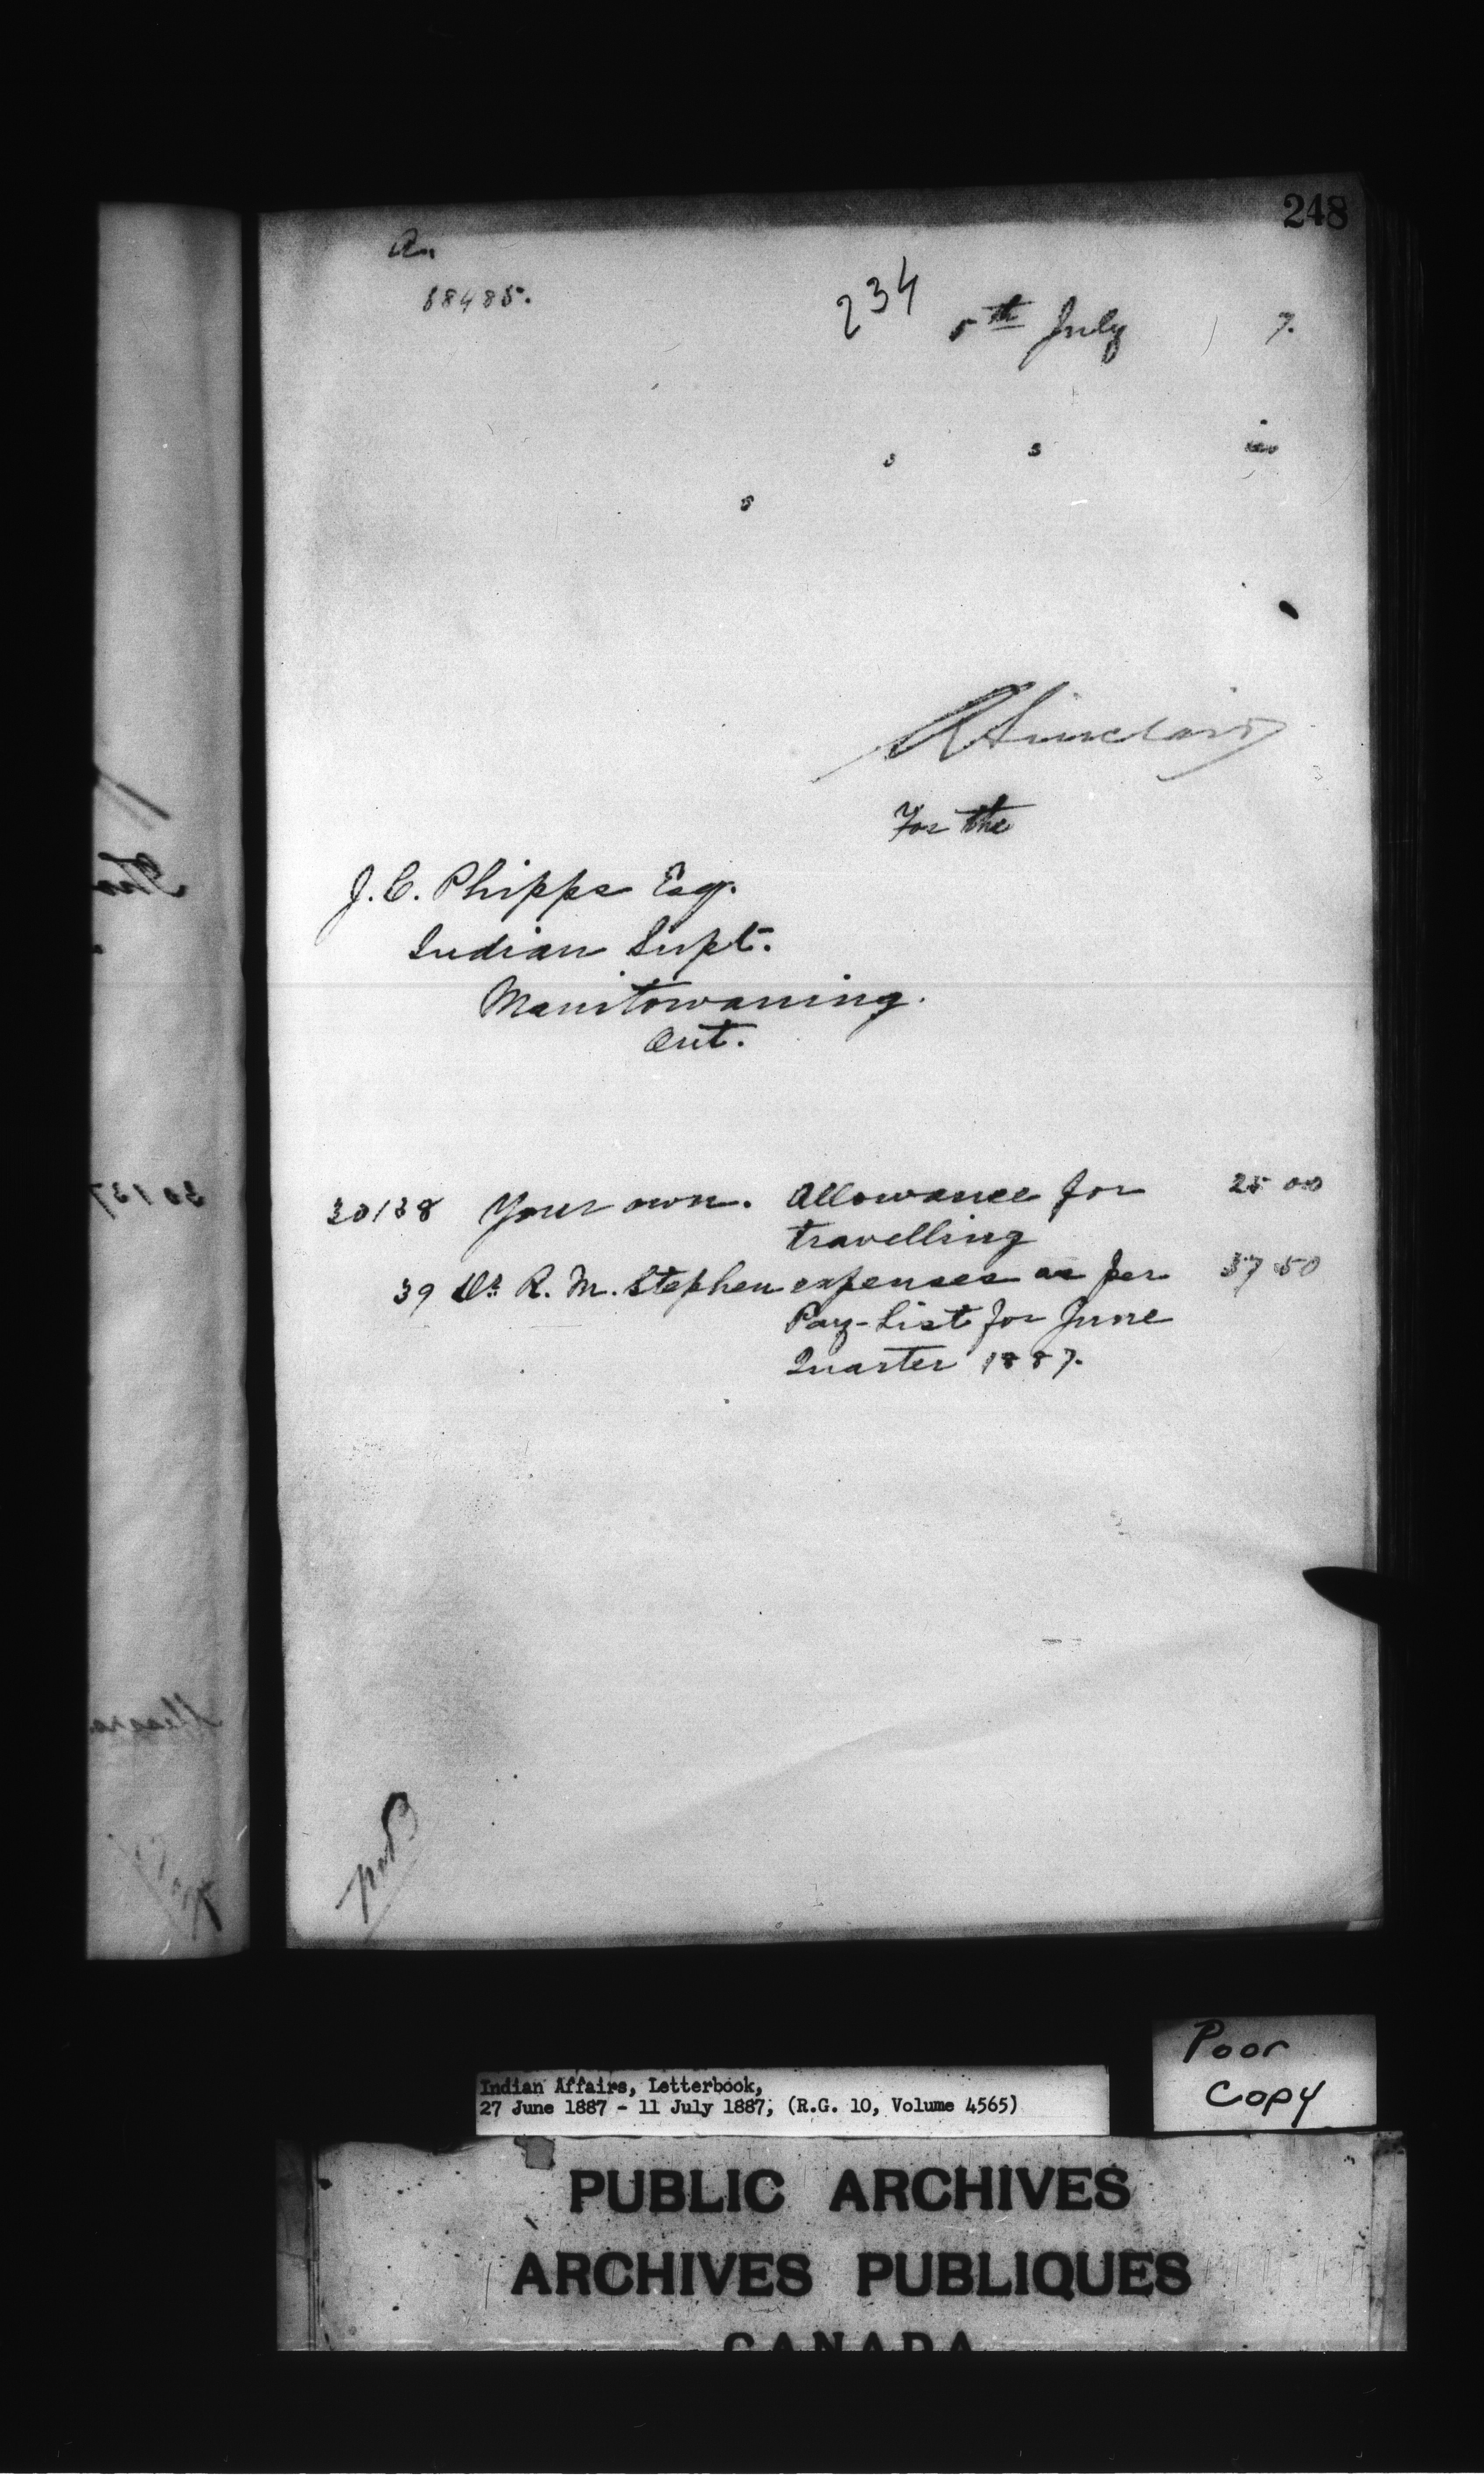 248
a.
234
5th July 7.
s s
s
R Sinclair
For the
J. C. Phipps Esq.
Indian Supt.
Manitowaning.
Ont.
30138 Your own. Allowance for 25 00
travelling
39 Dr R. M. Stephen expenses as per 37 50
Pay-List for June
Quarter 1887.
Poor
Copy
Indian Affairs, Letterbook,
27 June 1887 - 11 July 1887, (R.G. 10, Volume 4565)
PUBLIC ARCHIVES
ARCHIVES PUBLIQUES
CANADA